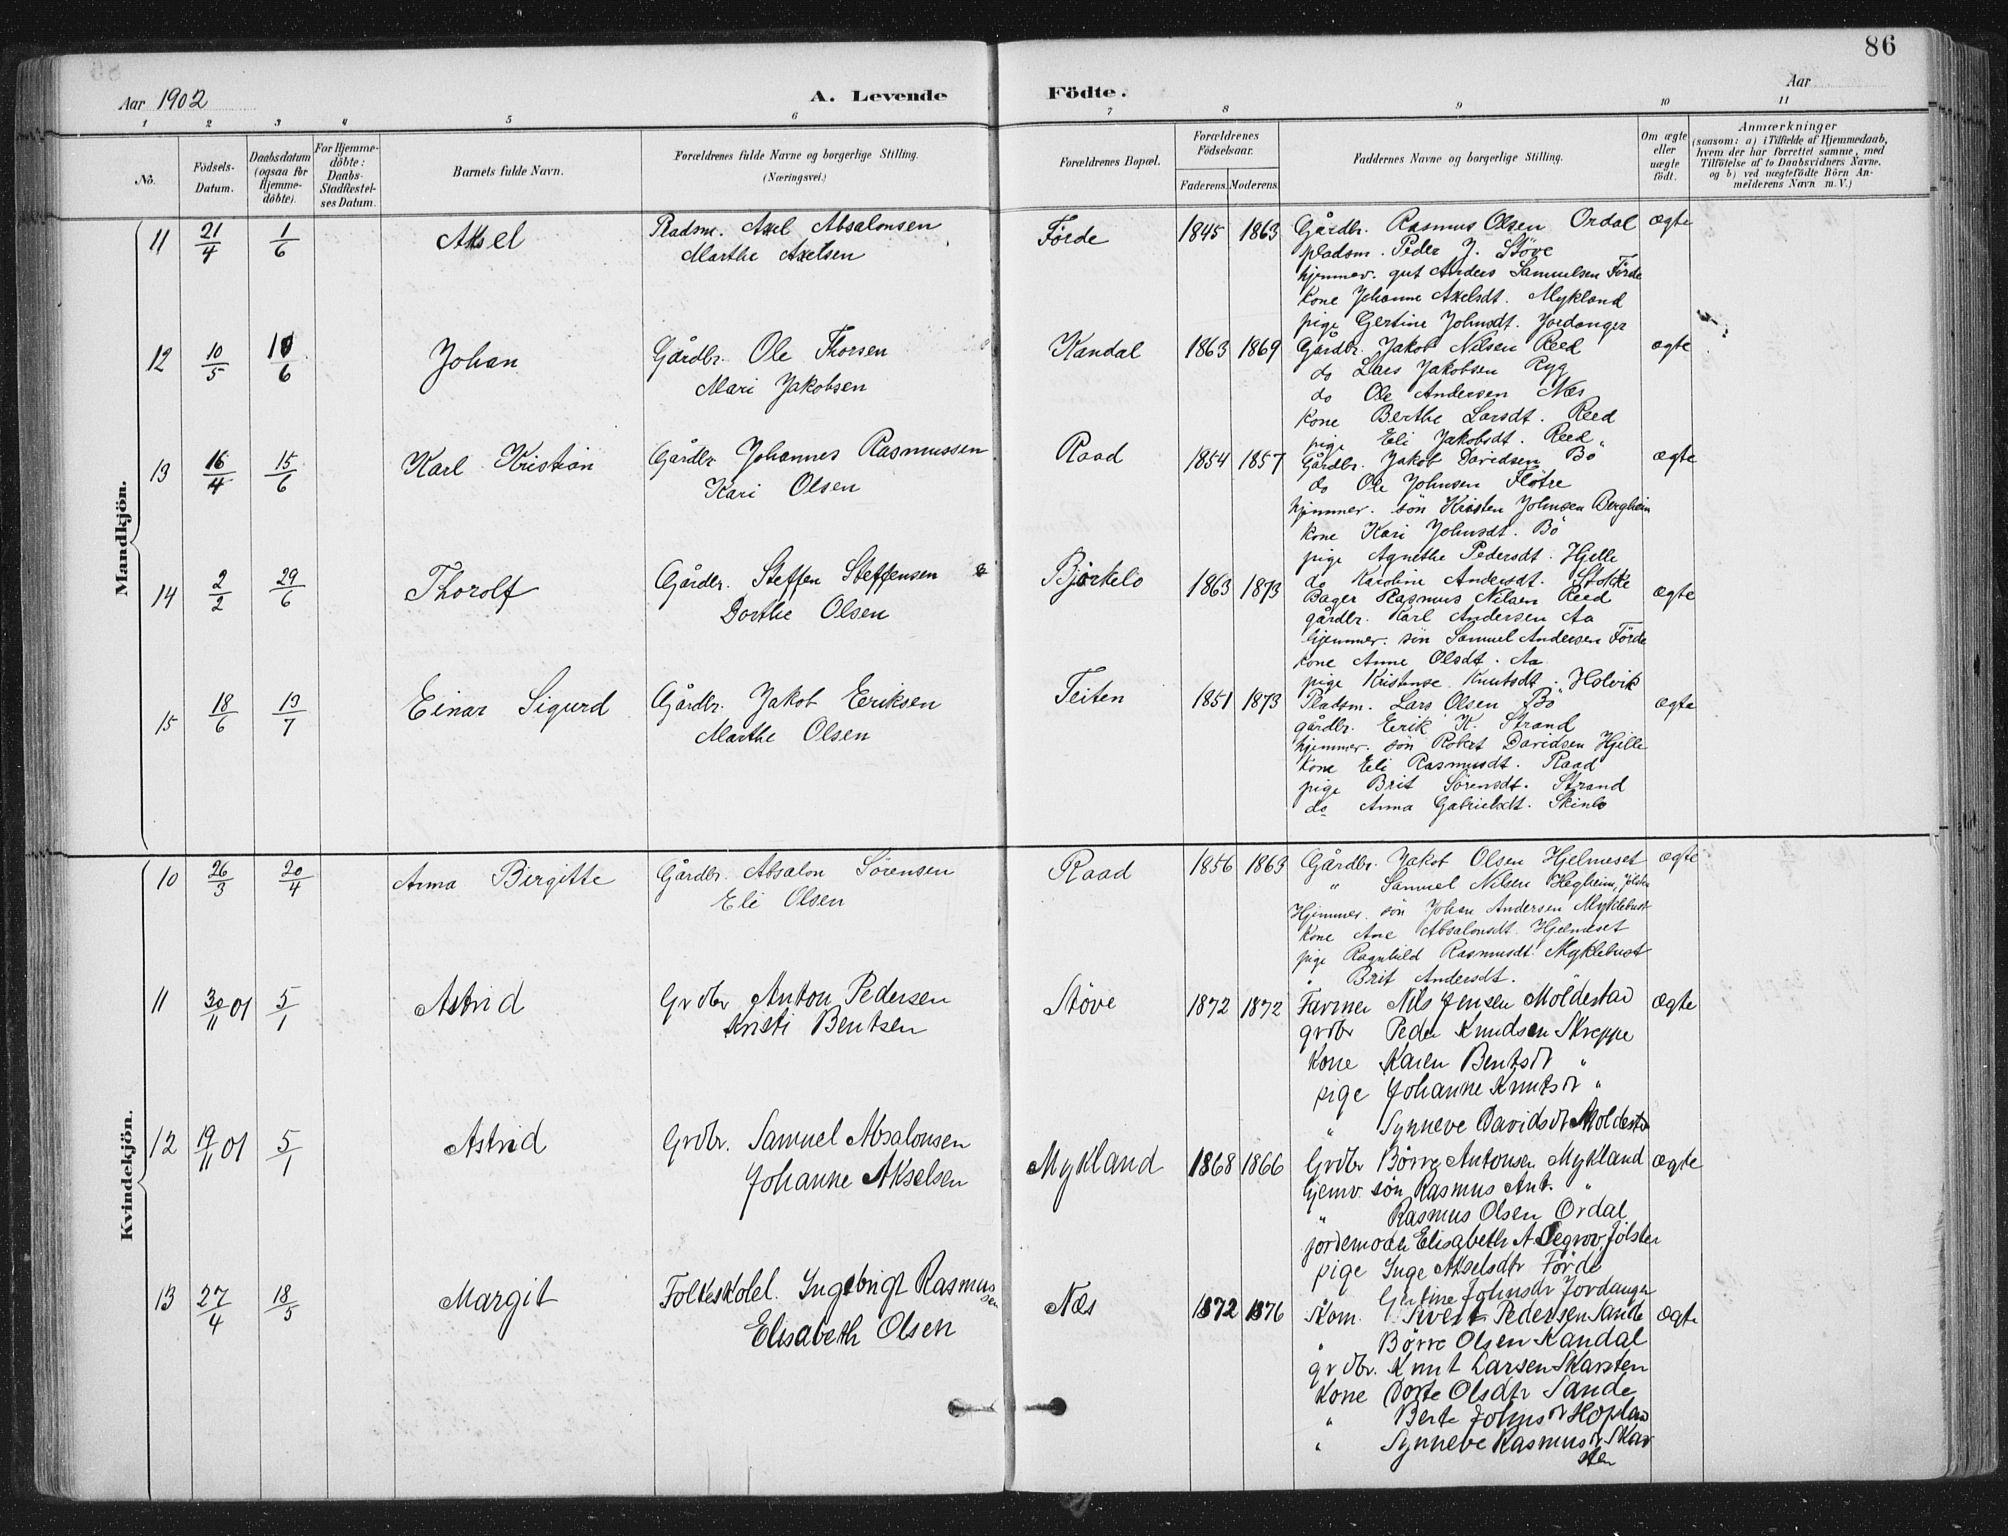 86
Aar 1902
A. Levende Födte.
Aar
1 2 3 4 5 6 7 8 9 10 11
No.
Födsels-Datum.
Daabsdatum (ogsaa for Hjemme-döbte).
For Hjemme-döbte: Daabs-Stadfæstel-ses Datum.
Barnets fulde Navn.
Forældrenes fulde Navne og borgerlige Stilling.
(Næringsvei.)
Forældrenes Bopæl.
Forældrenes Födselsaar.
Faderens. Moderens.
Faddernes Navne og borgerlige Stilling.
Om ægte eller uægte födt.
Anmærkninger
(saasom: a) i Tilfælde af Hjemmedaab,
hvem der har forrettet samme, med
Tilföielse af to Daabsvidners Navne.
og b) ved uægtefödte Börn An-
melderens Navn m. V.)
Mandkjön.
11 21/4 1/6 Aksel Pladsm. Axel Absalonsen Förde 1845 1863 Gårdbr. Rasmus Olsen Ordal ægte
Marthe Axelsen pladsm. Peder J. Støve
hjemmev. gut Anders Samuelsen Förde
kone Johanne Axelsdt. Mykland
pige Gertine Johnsdt. Jordanger
12 10/5 1/6 Johan Gårdbr. Ole Thorsen Kandal 1863 1869 Gårdbr. Jakob Nilsen Reed ægte
Mari Jakobsen do Lars Jakobsen Ryg
do Ole Andersen Næs
kone Berthe Larsdt. Reed
pige Eli Jakobsdt. Reed
13 16/4 15/6 Karl Kristian Gårdbr. Johannes Rasmussen Raad 1854 1857 Gårdbr. Jakob Davidsen Bö ægte
Kari Olsen do Ole Johnsen Fløtre
hjemmev. sön Kristen Johnsen Bergheim
kone Kari Johnsdt. Bö
pige Agnethe Pedersdt. Hjelle
do Karoline Andersdt. Stokke
14 2/2 29/6 Thorolf Gårdbr. Steffen Steffensen Bjørkelo 1863 1873 Bager Rasmus Nilsen Reed ægte
Dorthe Olsen gårdbr. Karl Andersen Aa
hjemmev. sön Samuel Andersen Förde
kone Anne Olsdt. Aa
pige Kristense Knutsdt. Holvik
15 18/6 13/7 Einar Sigurd Gårdbr. Jakob Eriksen Teiten 1851 1873 Pladsm. Lars Olsen Bö ægte
Marthe Olsen gårdbr. Eerik K. Strand
hjemmev. sön Robert Davidsen Hjelle
kone Eli Rasmusdt. Raad
pige Brit Sørensdt. Strand
do Anna Gabrielsdt. Skinlo
Kvindekjön.
10 26/3 20/4 Anna Birgitte Gårdbr. Absalon Sörensen Raad 1856 1863 Gårdbr. Jakob Olsen Hjelmeset ægte
Eli Olsen " Samuel Nilsen Hegheim, Jølster
Hjemmev. sön Johan Andersen Myklebust
kone Ane Absalonsdt. Hjelmeset
pige Ragnhild Rasmusdt. Myklebust
" Brit Andersdt.
11 30/11 01 5/1 Astrid Grdbr Anton Pedersen Støve 1872 1872 Farmer Nils Jensen Moldestad ægte
Kristi Bentsen grdbr Peder Knudsen Skreppe
kone Karen Bentsdr "
pige Johanne Knutsdr "
" Synneve Davidsdr Moldestad
12 19/11 01 5/1 Astrid Grdbr. Samuel Absalonsen Mykland 1868 1866 Grdbr Børre Antonsen Mykland ægte
Johanne Akselsen hjemv. søn Rasmus Ant. "
" Rasmus Olsen Ordal
jordemoder Elisabeth A Aegrov Jølster
pige Inge Akselsdtr Førde
Gertine Johnsdr Jordanger
13 27/4 18/5 Margit Folkeskolel. Ingebrigt Rasmussen Næs 1872 1876 Skom. Sivert Pedersen Sande ægte
Elisabeth Olsen " Børre Olsen Kandal
grdbr. Knut Larsen Skarsten
kone Dorte Olsdtr Sande
" Berte Johnsdr Hopland
" Synneve Rasmusdr Skarsten